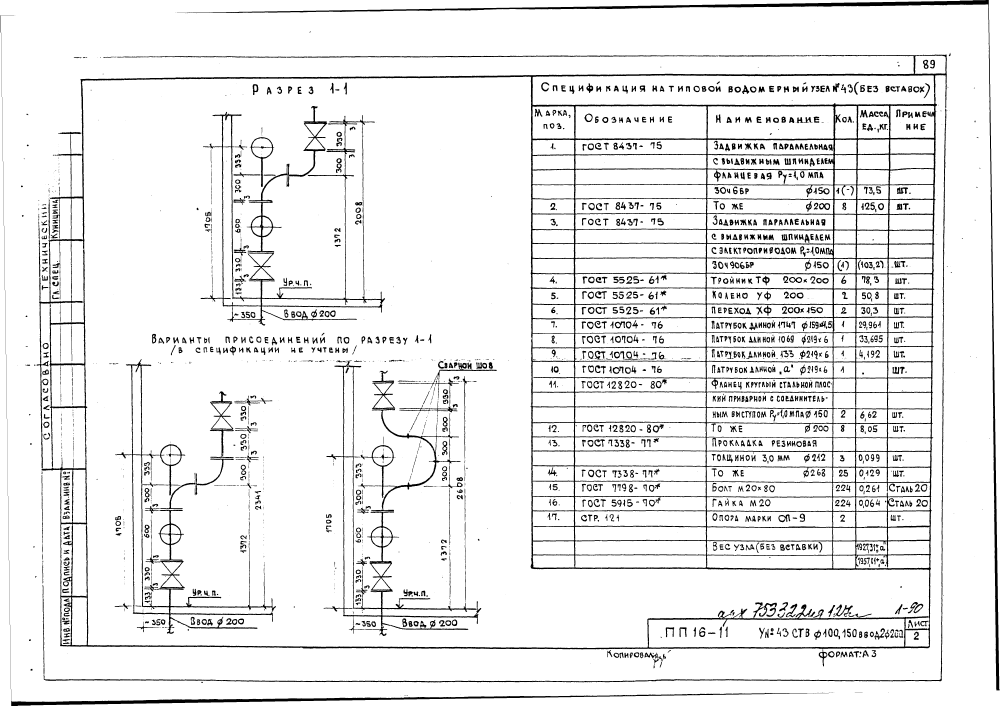 89
Разрез 1-1
330
3
300
353
300
3
600
3
330
133
3
1705
1372
2008
Ур.ч.п.
~350
Ввод ϕ200
Варианты присоединений по разрезу 1-1
/в спецификации не учтены/
Сварной шов
330
300
353
300
600
330
133
1705
1372
2341
Ур.ч.п.
~350
Ввод ϕ200
330
300
300
353
300
600
330
133
1705
1372
2608
Ур.ч.п.
~350
Ввод ϕ200
Спецификация на типовой водомерный узел №43 (без вставок)
Марка, поз. Обозначение Наименование Кол. Масса ед.,кг. Примечание
1. ГОСТ 8437-75 Задвижка параллельная
с выдвижным шпинделем
фланцевая Ру=1,0 мпа
30ч6бр ϕ150 1(-) 73,5 шт.
2. ГОСТ 8437-75 То же ϕ200 8 125,0 шт.
3. ГОСТ 8437-75 Задвижка параллельная
с выдвижным шпинделем
с электроприводом Ру=1,0мпа
30ч906бр ϕ150 (1) (103,2) шт.
4. ГОСТ 5525-61* Тройник ТФ 200×200 6 78,3 шт.
5. ГОСТ 5525-61* Колено УФ 200 2 50,8 шт.
6. ГОСТ 5525-61* Переход ХФ 200×150 2 30,3 шт.
7. ГОСТ 10704-76 Патрубок длиной 1747 ϕ159×4,5 1 29,961 шт.
8. ГОСТ 10704-76 Патрубок длиной 1069 ϕ219×6 1 33,695 шт.
9. ГОСТ 10704-76 Патрубок длиной 133 ϕ219×6 1 4,192 шт.
10. ГОСТ 10704-76 Патрубок длиной „а" ϕ219×6 1 шт.
11. ГОСТ 12820-80* Фланец круглый стальной плос-
кий приварной с соединитель-
ным выступом Ру=1,0 мпа ϕ150 2 6,62 шт.
12. ГОСТ 12820-80* То же ϕ200 8 8,05 шт.
13. ГОСТ 7338-77* Прокладка резиновая
толщиной 3,0 мм ϕ212 3 0,099 шт.
14. ГОСТ 7338-77* То же ϕ268 25 0,129 шт.
15. ГОСТ 7798-70* Болт м20×80 224 0,261 Сталь 20
16. ГОСТ 5915-70* Гайка м20 224 0,064 Сталь 20
17. стр. 121 Опора марки ОП-9 2 шт.
Вес узла (без вставки)
ПП 16-11
У№43 СТВ ϕ100,150 ввод 2ϕ200
Лист
2
1-90
Копировал
формат: А3
Технический
Гл. спец.
Куницина
Согласовано
Взам.инв.№
Подпись и дата
Инв №подл